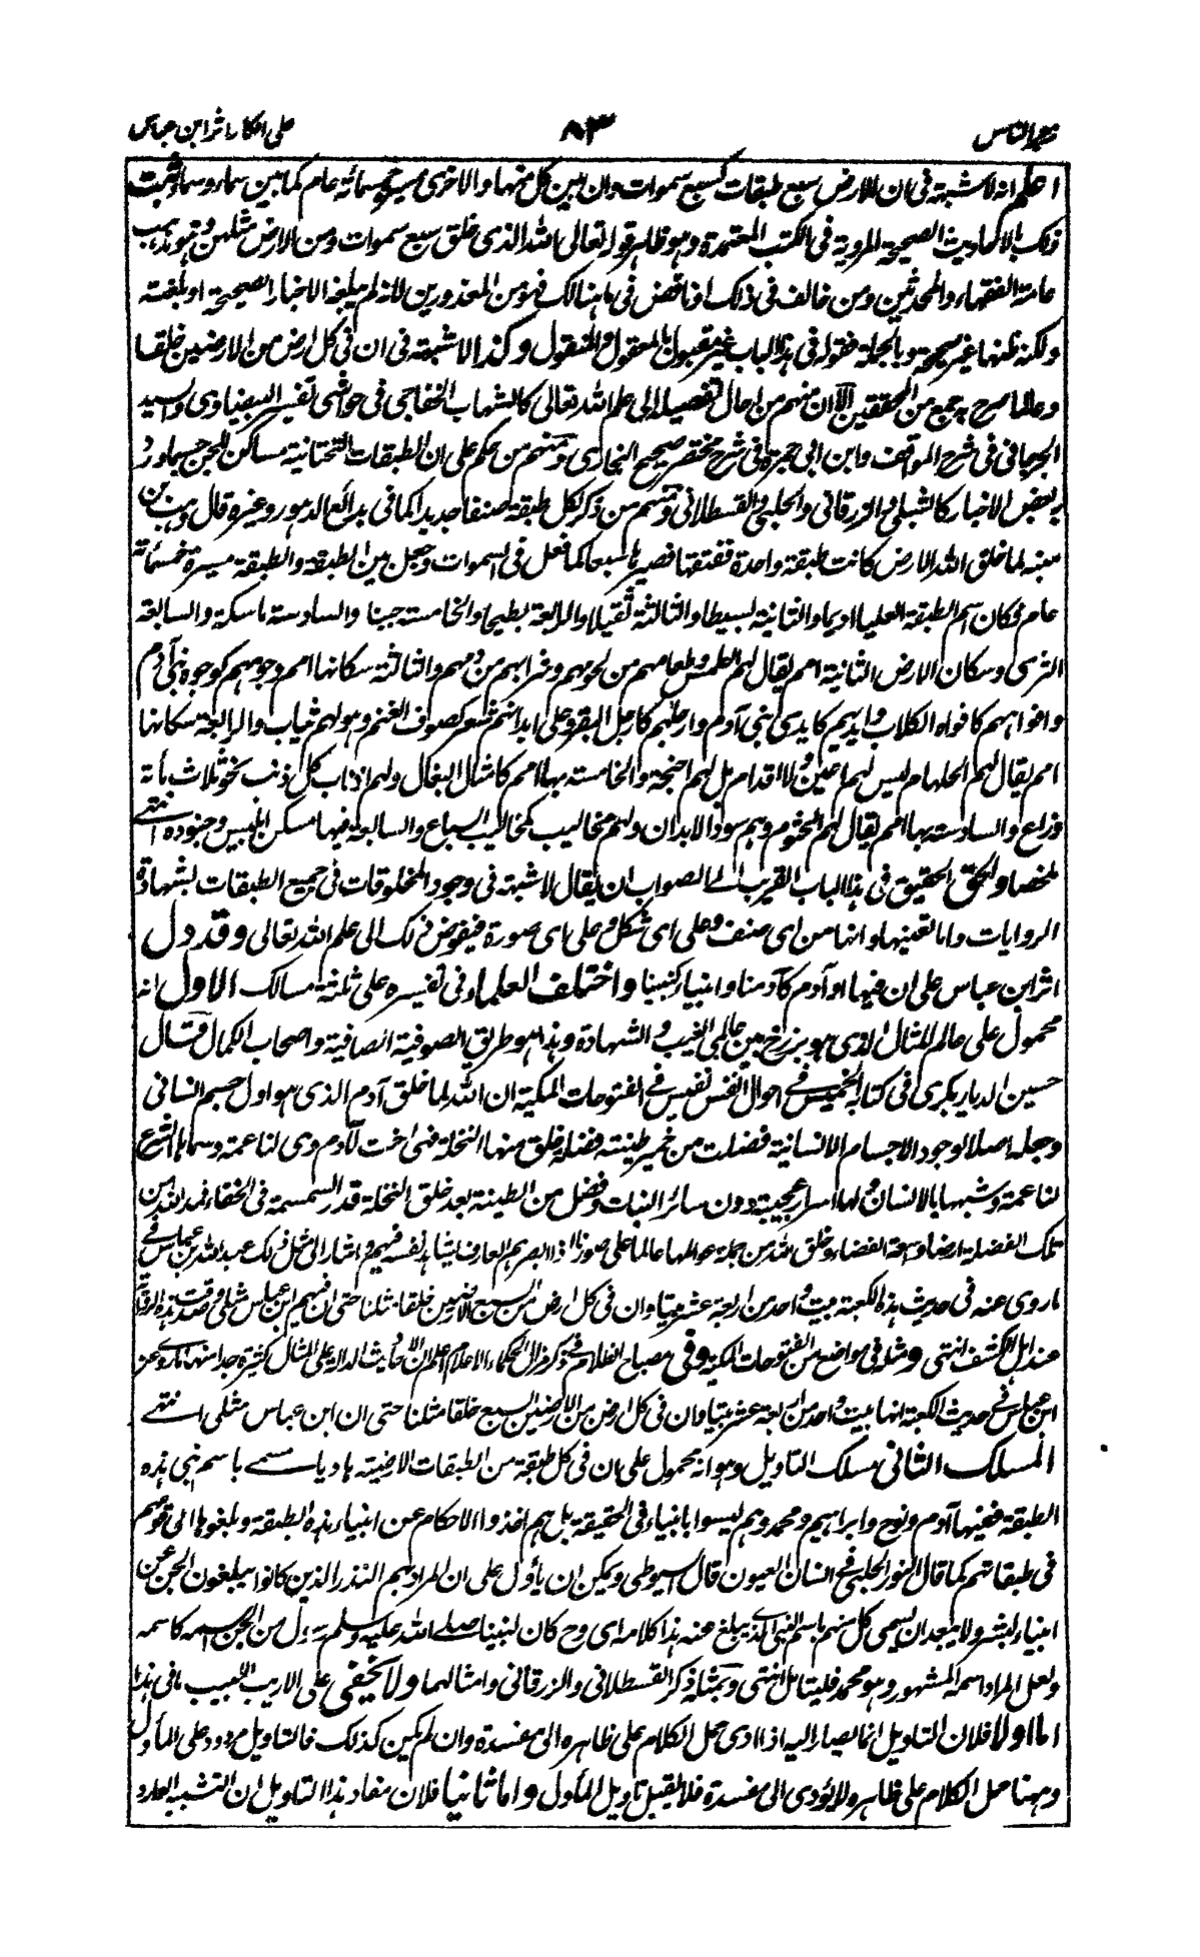 زجر الناس ٨٣ على انكار اثر ابن عباس
اعلم انه لا شبهة في ان للارض سبع طبقات كسبع سموات وان بين كل منها والاخرى مسيرة خمسمائة عام كما بين سماء وسماء ثبت
ذلك بالاحاديث الصحيحة المروية في الكتب المعتمدة وهو ظاهر قوله تعالى الله الذى خلق سبع سموات ومن الارض مثلهن وهو مذهب
عامة الفقهاء والمحدثين ومن خالف في ذلك او ناقض في ما هنالك فهو من المعذورين لانه لم يبلغه الاخبار الصحيحة او بلغته
ولكنه ظنها غير صحيحة وبالجملة فقوله في هذا الباب غير مقبول بالمعقول والمنقول وكذا لا شبهة في ان في كل ارض من الارضين خلقا
وعالما صرح به جمع من المحققين الا ان منهم من احال تفصيله الى علم الله تعالى كالشهاب الخفاجي في حواشي تفسير البيضاوى والسيد
الجرجاني في شرح المواقف وابن ابي جمرة في شرح مختصر صحيح البخارى ومنهم من حكم على ان الطبقات التحتانية مساكن الجن حسبما ورد
ببعض الاخبار كالشبلى والزرقاني والحلبي والقسطلاني ومنهم من ذكر لكل طبقة صنفا جديدا كما في بدائع الدهور وغيره قال وهب بن
منبه لما خلق الله الارض كانت طبقة واحدة ففتقها فصيرها سبعا كما فعل في السموات وجعل بين الطبقة والطبقة مسيرة خمسمائة
عام فكان اسم الطبقة العليا اديما والثانية بسيطا والثالثة ثقيلا والرابعة بطيحا والخامسة حينا والسادسة ماسكة والسابعة
الثرى وسكان الارض الثانية امم يقال لهم الطمس وطعامهم من لحومهم وشرابهم من دمهم والثالثة سكانها امم وجوههم كوجوه بني آدم
وافواههم كافواه الكلاب وايديهم كايدى بني آدم وارجلهم كارجل البقر وعلى ابدانهم شعر كصوف الغنم وهو لهم ثياب والرابعة سكانها
امم يقال لهم الحلهام ليس لهم اعين ولا اقدام بل لهم اجنحة والخامسة بها امم كامثال البغال ولهم اذناب كل ذنب نحو ثلاث مائة
ذراع والسادسة بها امم يقال لهم الحثوم وهم سود الابدان ولهم مخاليب كمخاليب السباع والسابعة فيها مسكن ابليس وجنوده انتهى
ملخصا والحق الحقيق في هذا الباب القريب الى الصواب ان يقال لا شبهة في وجود المخلوقات في جميع الطبقات بشهادة
الروايات واما تعينها وانها من اى صنف وعلى اى شكل وعلى اى صورة فيفوض ذلك الى علم الله تعالى وقد دل
اثر ابن عباس على ان فيها اوآدم كآدمنا وانبياء كنبينا واختلف العلماء في تفسيره على ثلثة مسالك الاول انه
محمول على عالم المثال الذى هو برزاخ بين عالمي الغيب والشهادة وهذا هو طريق الصوفية الصافية واصحاب الكمال قال
حسين الدياربكرى في كتابه الخميس في احوال النفس نفيس في الفتوحات المكية ان الله لما خلق آدم الذى هو اول جسم انساني
وجعله اصلا لوجود الاجسام الانسانية فضلت من خمير طينته فضلة خلق منها النخلة فهي اخت لآدم وهى لنا عمة وسماها الشرع
لنا عمة وشبهها بالانسان ولها اسرار عجيبة دون سائر النبات وفضل من الطينة بعد خلق النخلة قدر السمسمة في الخفاء فمد الله من
تلك الفضلة ارضا واسعة الفضاء وخلق الله من جملة عوالمها عالما على صورنا اذا ابصرهم العارف يشاهد نفسه فيهم واشار الى مثل ذلك عبد الله بن عباس في
ما روى عنه في حديث هذه الكعبة بيت واحد من اربعة عشر بيتا وان في كل ارض من السبع الارضين خلقا مثلنا حتى ان فيهم ابن عباس مثلى وصدقت هذه الرواية
عند اهل الكشف انتهى ومثله في مواضع من الفتوحات المكية وفي مصباح الظلام في ذكر منزل الحكماء الاعلام اعلم ان الاحاديث الدالة على المثال كثيرة جدا منها ما روى عن
ابن عباس في حديث الكعبة انها بيت واحد من اربعة عشر بيتا وان في كل ارض من الارضين السبع خلقا مثلنا حتى ان ابن عباس مثلى انتهى
المسلك الثاني مسلك التاويل وهو انه محمول على ان في كل طبقة من الطبقات الارضية هاديا يسمى باسم نبي هذه
الطبقة ففيها آدم ونوح وابراهيم ومحمد وهم ليسوا بانبياء في الحقيقة بل هم اخذوا الاحكام عن انبياء هذه الطبقة وبلغوها الى قومهم
في طبقاتهم كما قال النور الحلبي في انسان العيون قال السيوطى ويمكن ان يأول على ان المراد بهم النذر الذين كانوا يبلغون الجن عن
انبياء البشر ولا يبعد ان يسمى كل منهم باسم النبي الذى يبلغ عنه هذا كلامه اى وح كان لنبينا صلى الله عليه وسلم رسول من الجن اسمه كاسمه
ولعل المراد اسمه المشهور وهو محمد فليتامل انتهى وبمثله ذكر القسطلاني والزرقاني وامثالهما ولا يخفى على الاريب اللبيب ما في هذا
اما اولا فلان التاويل انما يصار اليه اذا ادى حمل الكلام على ظاهره الى مفسدة وان لم يكن كذلك فالتاويل مردود على المأول
وههنا حمل الكلام على ظاهره لا يؤدى الى مفسدة فلا يقبل تاويل المأول واما ثانيا فلان مفاد هذا التاويل ان التشبيه الوارد